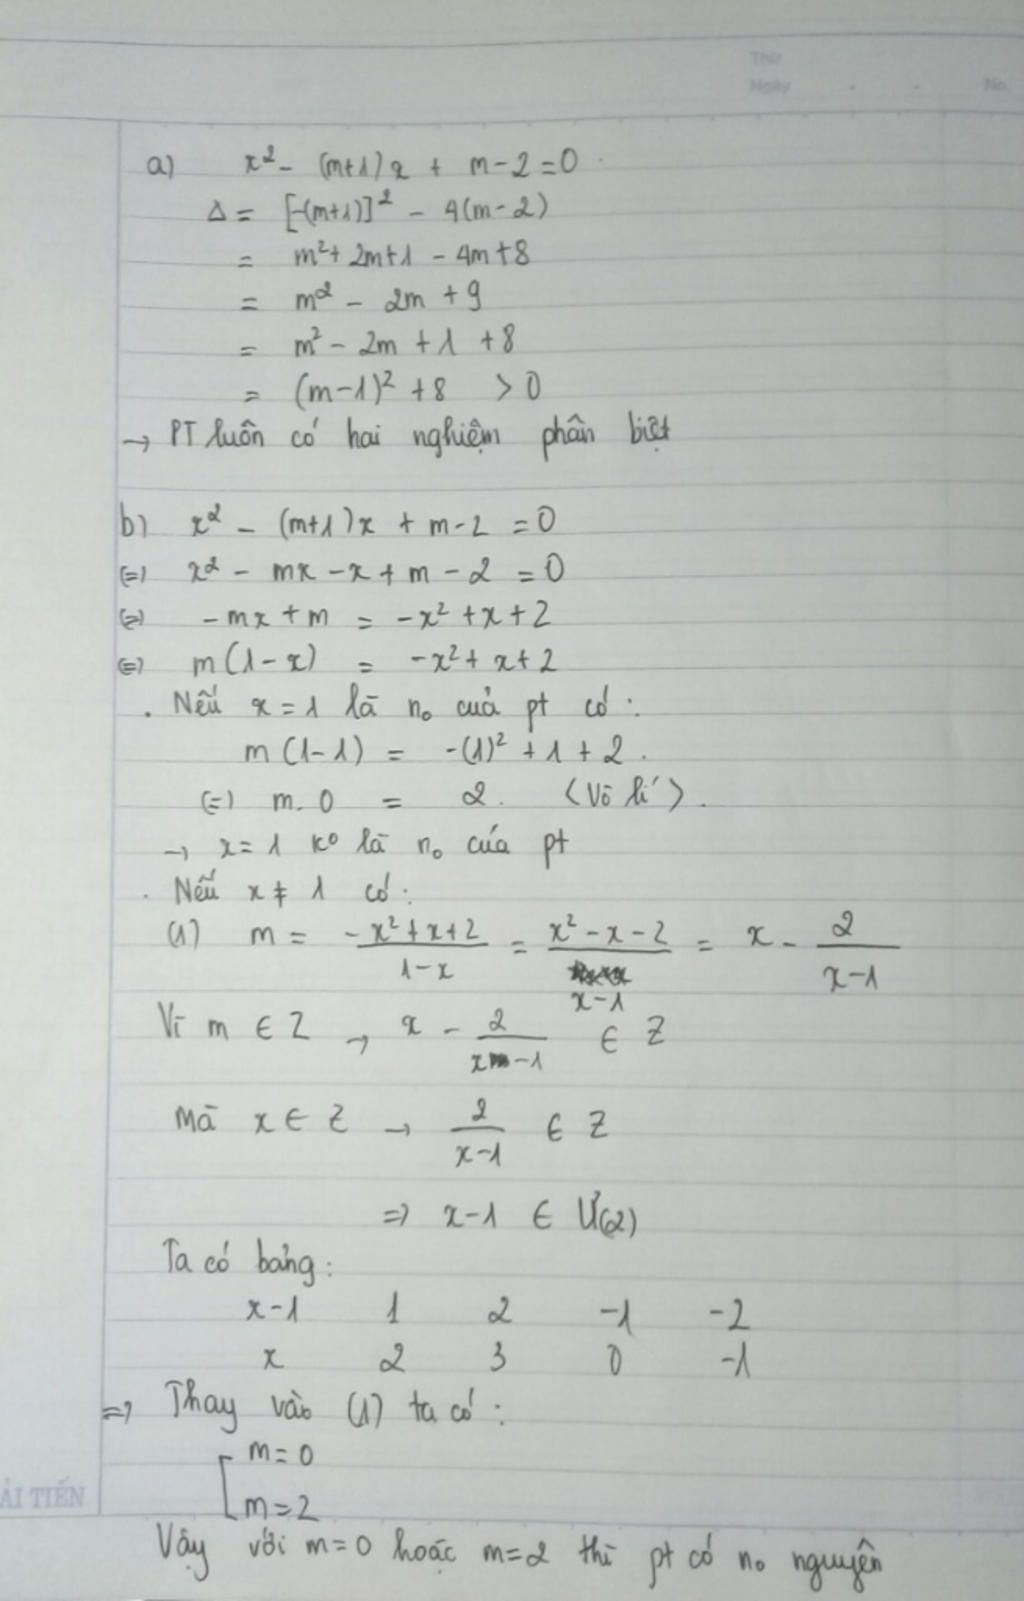 Thứ
Ngày . . No.
a) x² - (m+1)x + m-2 = 0
Δ = [-(m+1)]² - 4(m-2)
= m² + 2m+1 - 4m+8
= m² - 2m + 9
= m² - 2m + 1 + 8
= (m-1)² + 8 > 0
→ PT luôn có hai nghiệm phân biệt
b) x² - (m+1)x + m-2 = 0
(=) x² - mx - x + m - 2 = 0
(=) -mx + m = -x² + x + 2
(=) m(1-x) = -x² + x + 2
. Nếu x = 1 là n₀ của pt có :
m(1-1) = -(1)² + 1 + 2 .
(=) m. 0 = 2. (Vô lí).
→ x = 1 k⁰ là n₀ của pt
. Nếu x ≠ 1 có :
(1) m = (-x²+x+2)/(1-x) = (x²-x-2)/(x-1) = x - 2/(x-1)
Vì m ∈ Z → x - 2/(x-1) ∈ Z
Mà x ∈ Z → 2/(x-1) ∈ Z
=> x-1 ∈ Ư(2)
Ta có bảng :
x-1 1 2 -1 -2
x 2 3 0 -1
=> Thay vào (1) ta có :
[ m = 0
m = 2
ẢI TIẾN
Vậy với m = 0 hoặc m = 2 thì pt có n₀ nguyên